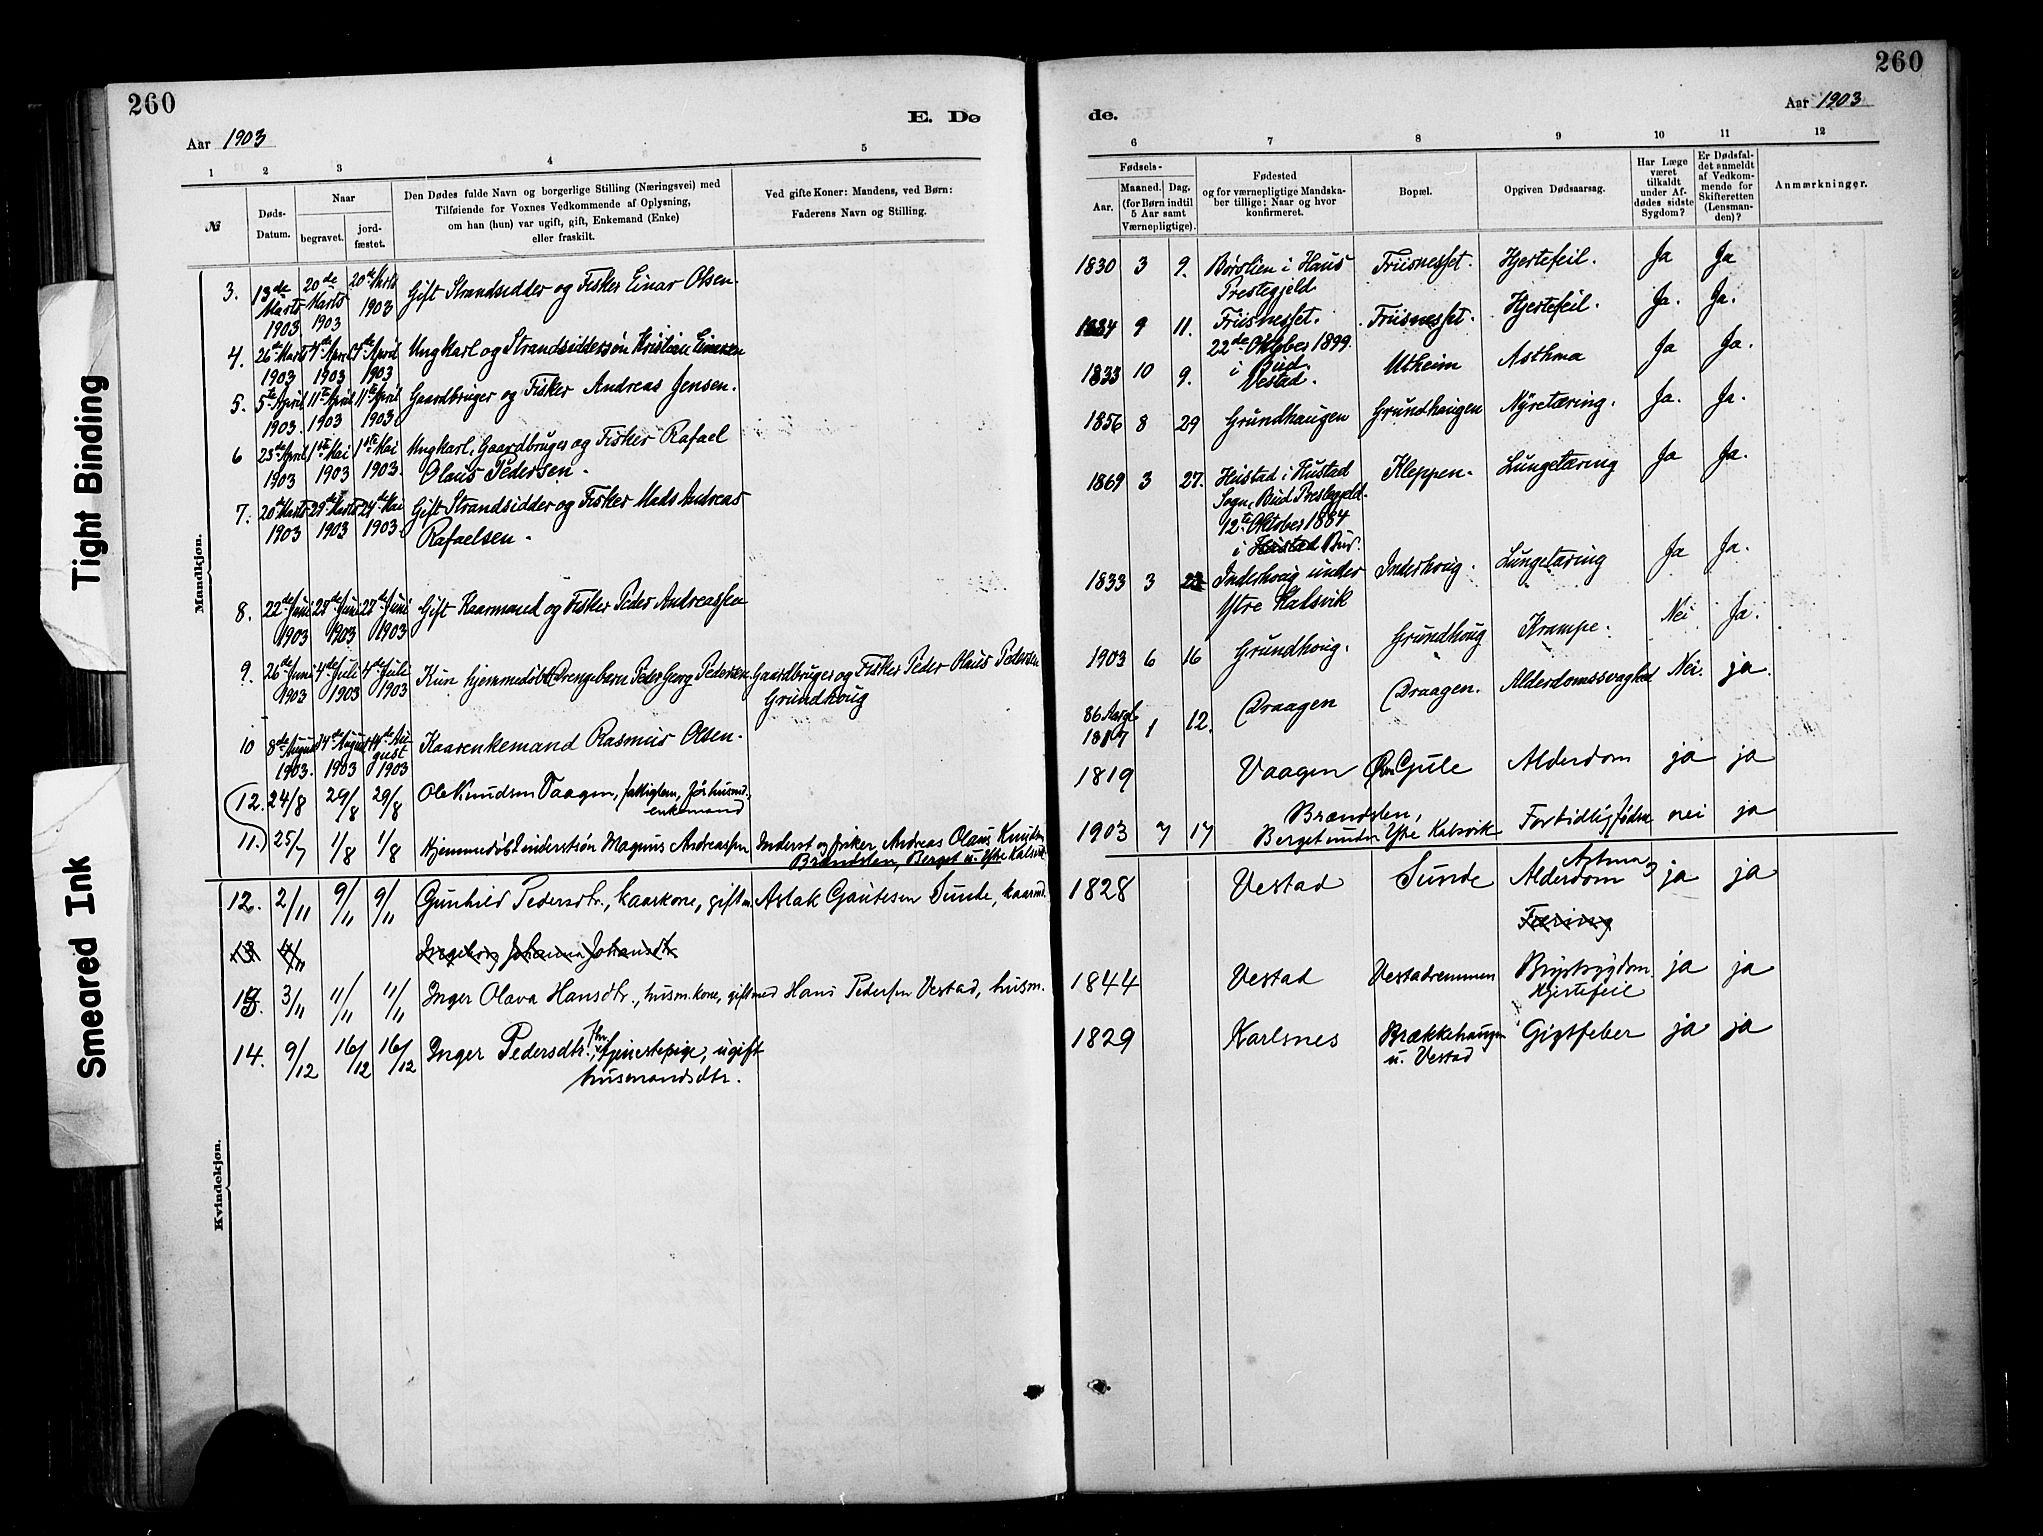 260
Aar 1903
E. Dø
1 2 3 4 5
№
Døds-
Datum.
Naar
begravet.
jord-
fæstet.
Den Dødes fulde Navn og borgerlige Stilling (Næringsvei) med
Tilføiende for Voxnes Vedkommende af Oplysning,
om han (hun) var ugift, gift, Enkemand (Enke)
eller fraskilt.
Ved gifte Koner: Mandens, ved Børn:
Faderens Navn og Stilling.
Mandkjøn.
3. 13de Marts 1903 20de Marts 1903 20de Marts 1903 Gift Strandsidder og Fisker Einar Olsen.
4. 26de Marts 1903 4de April 1903 4de April 1903 Ungkarl og Strandsiddersøn Kristian Einersen
5. 5te April 1903. 11te April 1903 11te April 1903. Gaardbruger og Fisker Andreas Jensen.
6 23de April 1903 1ste Mai 1903 1ste Mai 1903. Ungkarl, Gaardbruger og Fisker Rafael
Olaus Pedersen.
7. 20de Marts 1903 29de Marts 1903 24de Mai 1903. Gift Strandsidder og Fisker Mads Andreas
Rafaelsen.
8. 22de Juni 1903 28de Juni 1903 28de Juni 1903 Gift Kaarmand og Fisker Peder Andreassen
9. 26de Juni 1903 4de Juli 1903 4de Juli 1903 Kun hjemmedøbt Drengebarn Peder Georg Pedersen Gaardbruger og Fisker Peder Olaus Pedersen
Grundhoug
10 8de August 1903. 14de August 1903 14de August 1903 Kaarenkemand Rasmus Olsen.
12. 24/8 29/8 29/8 Ole Knudsen Vaagen, fattiglem, før husmd.,
enkemand
11. 25/7 1/8 1/8 Hjemmedøbt inderstsøn Magnus Andreassen Inderst og fisker Andreas Olaus Knudsen
Brandslen, Berget u. Ytre Kalsvik
Kvindekjøn.
12. 2/11 9/11 9/11 Gunhild Pedersdtr., kaarkone, gift m. Aslak Gautesen Sunde, kaarmd.
13 4/11 Ingeborg Johanna Johansdtr.
13. 3/11 11/11 11/11 Inger Olava Hansdtr., husm.kone, gift med Hans Pedersen Vestad, husm.
14. 9/12 16/12 16/12 Inger Pedersdtr., fhv. tjenestepige, ugift
husmandsdtr.
260
Aar 1903
de.
6 7 8 9 10 11 12
Fødsels-
Aar.
Maaned. Dag.
(for Børn indtil
5 Aar samt
Værnepligtige).
Fødested
og for værnepligtige Mandska-
ber tillige: Naar og hvor
konfirmeret.
Bopæl.
Opgiven Dødsaarsag.
Har Læge
været
tilkaldt
under Af-
dødes sidste
Sygdom?
Er Dødsfal-
det anmeldt
af Vedkom-
mende for
Skifteretten
(Lensman-
den)?
Anmærkninger.
1830 3 9. Børslien i Haus Friisnesset. Hjertefeil. Ja Ja
Prestegjeld
1884 9 11. Friisnesset. Friisnesset. Hjertefeil. Ja. Ja.
22de Oktober 1899
i Bud.
1833 10 9. Vestad. Utheim Asthma Ja Ja.
1856 8 29 Grundhaugen Grundhaugen Nyretæring. Ja. Ja.
1869 3 27. Hustad i Hustad Kleppen. Lungetæring Ja Ja.
Sogn, Bud Prestegjeld.
12te Oktober 1884
i Hustad Bud.
1833 3 Inderhoug under Inderhoug. Lungetæring Ja Ja.
Ytre Kalsvik
1903 6 16 Grundhoug. Grundhoug Krampe. Nei Ja.
86 Aar gl. 1817 1 12. Draagen Draagen. Alderdomssvaghed Nei. ja.
1819 Vaagen Gule Alderdom ja ja
1903 7 17 Brandslen,
Berget under Ytre Kalsvik For tidlig fødsel nei ja
1828 Vestad Sunde Astma
Alderdom ja ja
Tæring
1844 Vestad Vestadremmen Brystsygdom ja ja
Hjertefeil
1829 Karlsnes Brækkehaugen Gigtfeber ja ja
u. Vestad
Tight Binding
Smeared Ink